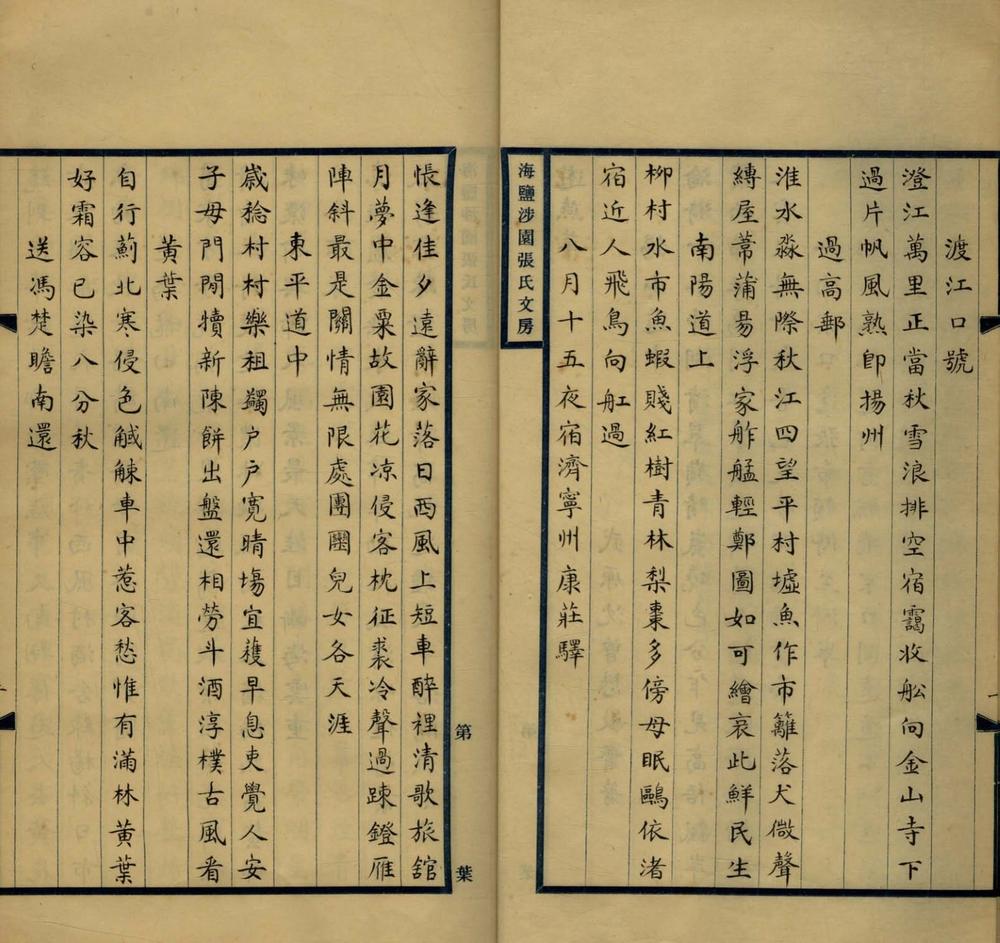 渡江口號
澄江萬里正當秋雪浪排空宿靄收舩向金山寺下
過片帆風熟卽揚州
過高郵
淮水淼無際秋江四望平村墟魚作市籬落犬微聲
縛屋蒂蒲昜浮家舴艋輕鄭圖如可繪哀此鮮民生
南陽道上
柳村水市魚蝦賤紅樹青林梨棗多傍母眠鷗依渚
宿近人飛鳥向舡過
八月十五夜宿濟寧州康莊驛
海鹽涉園張氏文房
悵逢佳夕遠辭家落日西風上短車醉裡清歌旅舘
月夢中金粟故園花凉侵客枕征裘冷聲過踈鐙雁
陣斜最是關情無限處團圞兒女各天涯
東平道中
歲稔村村樂租蠲户户寛晴塲宜穫早息吏覺人安
子母門閒犢新陳餅出盤還相勞斗酒淳樸古風看
黃葉
自行薊北寒侵色觱觫車中惹客愁惟有滿林黃葉
好霜容已染八分秋
送馮楚瞻南還
第 葉